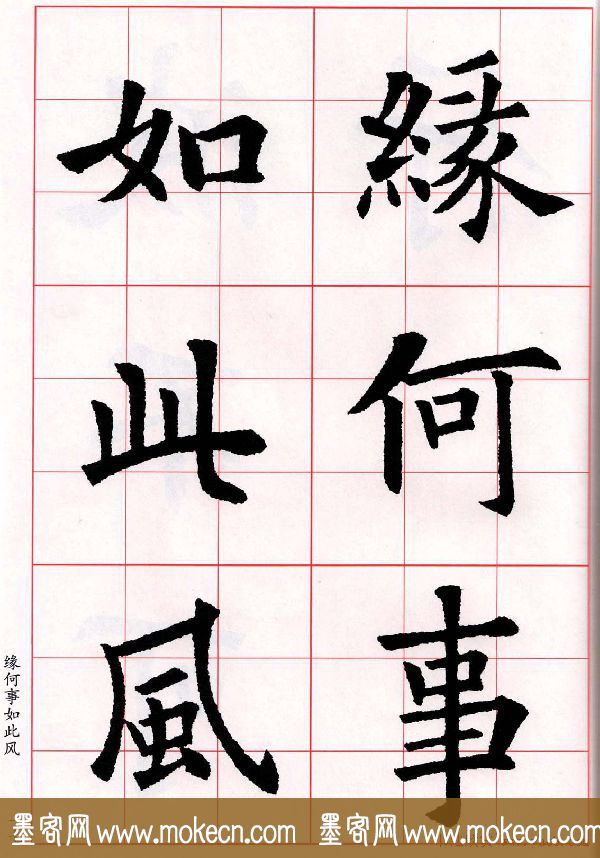 緣何事
如此風
缘何事如此风
墨客网 www.mokecn.com 墨客网 www.mokecn.com